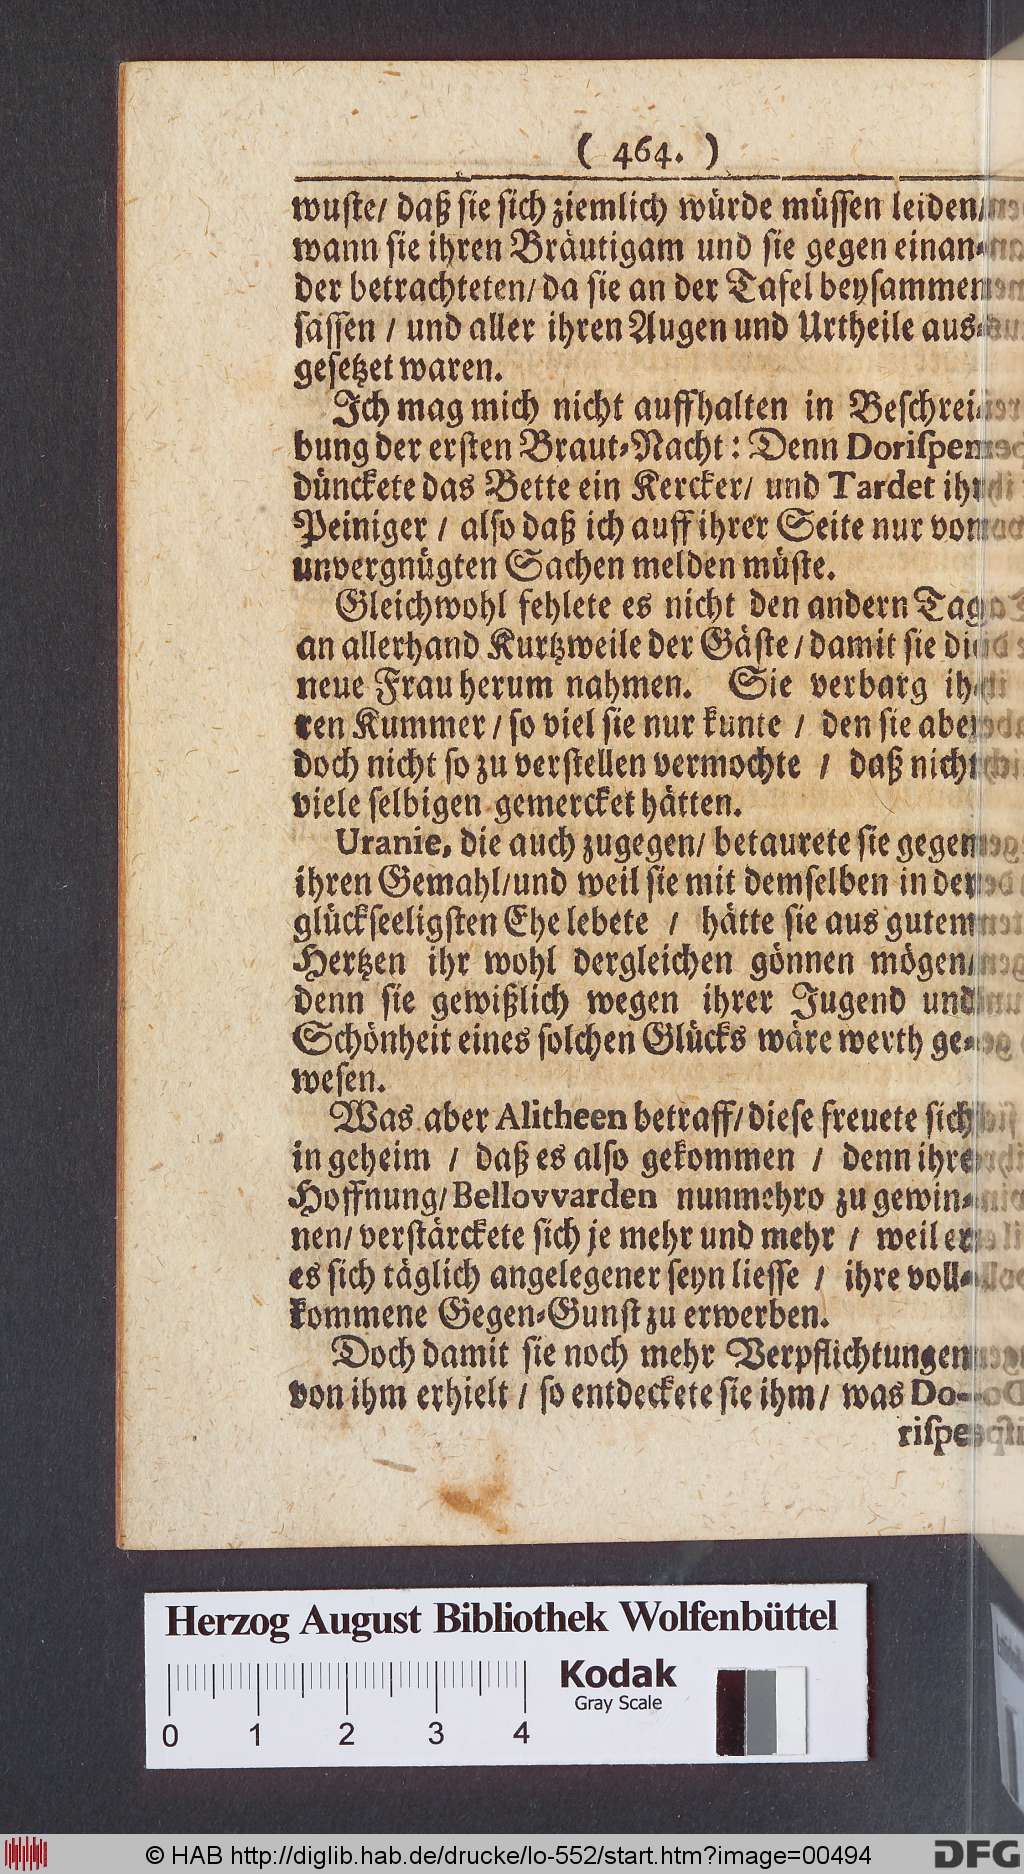 ( 464. )
wuste/ daß sie sich ziemlich würde müssen leiden/
wann sie ihren Bräutigam und sie gegen einan-
der betrachteten/ da sie an der Tafel beysammen
sassen / und aller ihren Augen und Urtheile aus-
gesetzet waren.
Ich mag mich nicht auffhalten in Beschrei-
bung der ersten Braut-Nacht: Denn Dorispen
dünckete das Bette ein Kercker/ und Tardet ihr
Peiniger / also daß ich auff ihrer Seite nur von
unvergnügten Sachen melden müste.
Gleichwohl fehlete es nicht den andern Tag
an allerhand Kurtzweile der Gäste / damit sie die
neue Frau herum nahmen. Sie verbarg ih-
ren Kummer / so viel sie nur kunte / den sie aber
doch nicht so zu verstellen vermochte / daß nicht
viele selbigen gemercket hätten.
Uranie, die auch zugegen/ betaurete sie gegen
ihren Gemahl/ und weil sie mit demselben in der
glückseeligsten Ehe lebete / hätte sie aus gutem
Hertzen ihr wohl dergleichen gönnen mögen/
denn sie gewißlich wegen ihrer Jugend und
Schönheit eines solchen Glücks wäre werth ge-
wesen.
Was aber Alitheen betraff/ diese freuete sich
in geheim / daß es also gekommen / denn ihre
Hoffnung/ Bellovvarden nunmehro zu gewin-
nen/ verstärckete sich je mehr und mehr / weil er
es sich täglich angelegener seyn liesse / ihre voll-
kommene Gegen-Gunst zu erwerben.
Doch damit sie noch mehr Verpflichtungen
von ihm erhielt / so entdeckete sie ihm/ was Do-
rispe
Herzog August Bibliothek Wolfenbüttel
Kodak
Gray Scale
0 1 2 3 4
© HAB http://diglib.hab.de/drucke/lo-552/start.htm?image=00494
DFG